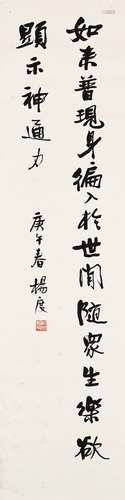 如来普現身徧入於世間隨眾生樂欲
顯示神通力
庚午春楊度